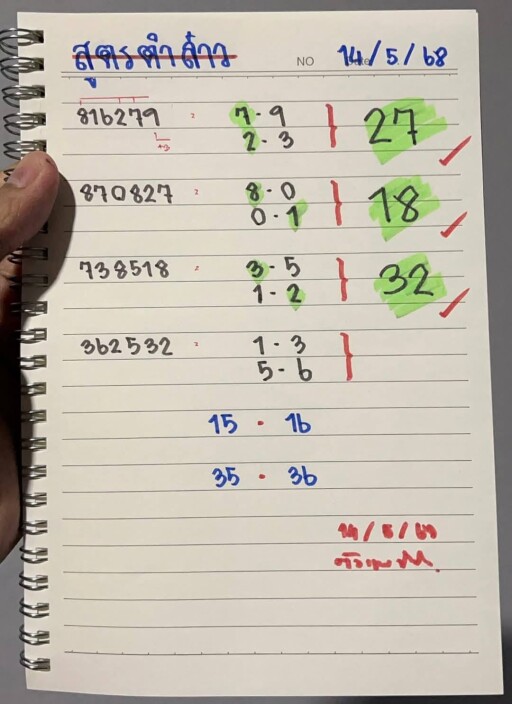 สูตรตำล้าว NO 14/5/68
816279 = 7-9 } 27 ✓
2-3
870827 = 8-0 } 18 ✓
0-1
738518 = 3-5 } 32 ✓
1-2
362532 1-3 }
5-6
15 · 16
35 · 36
14/5/68